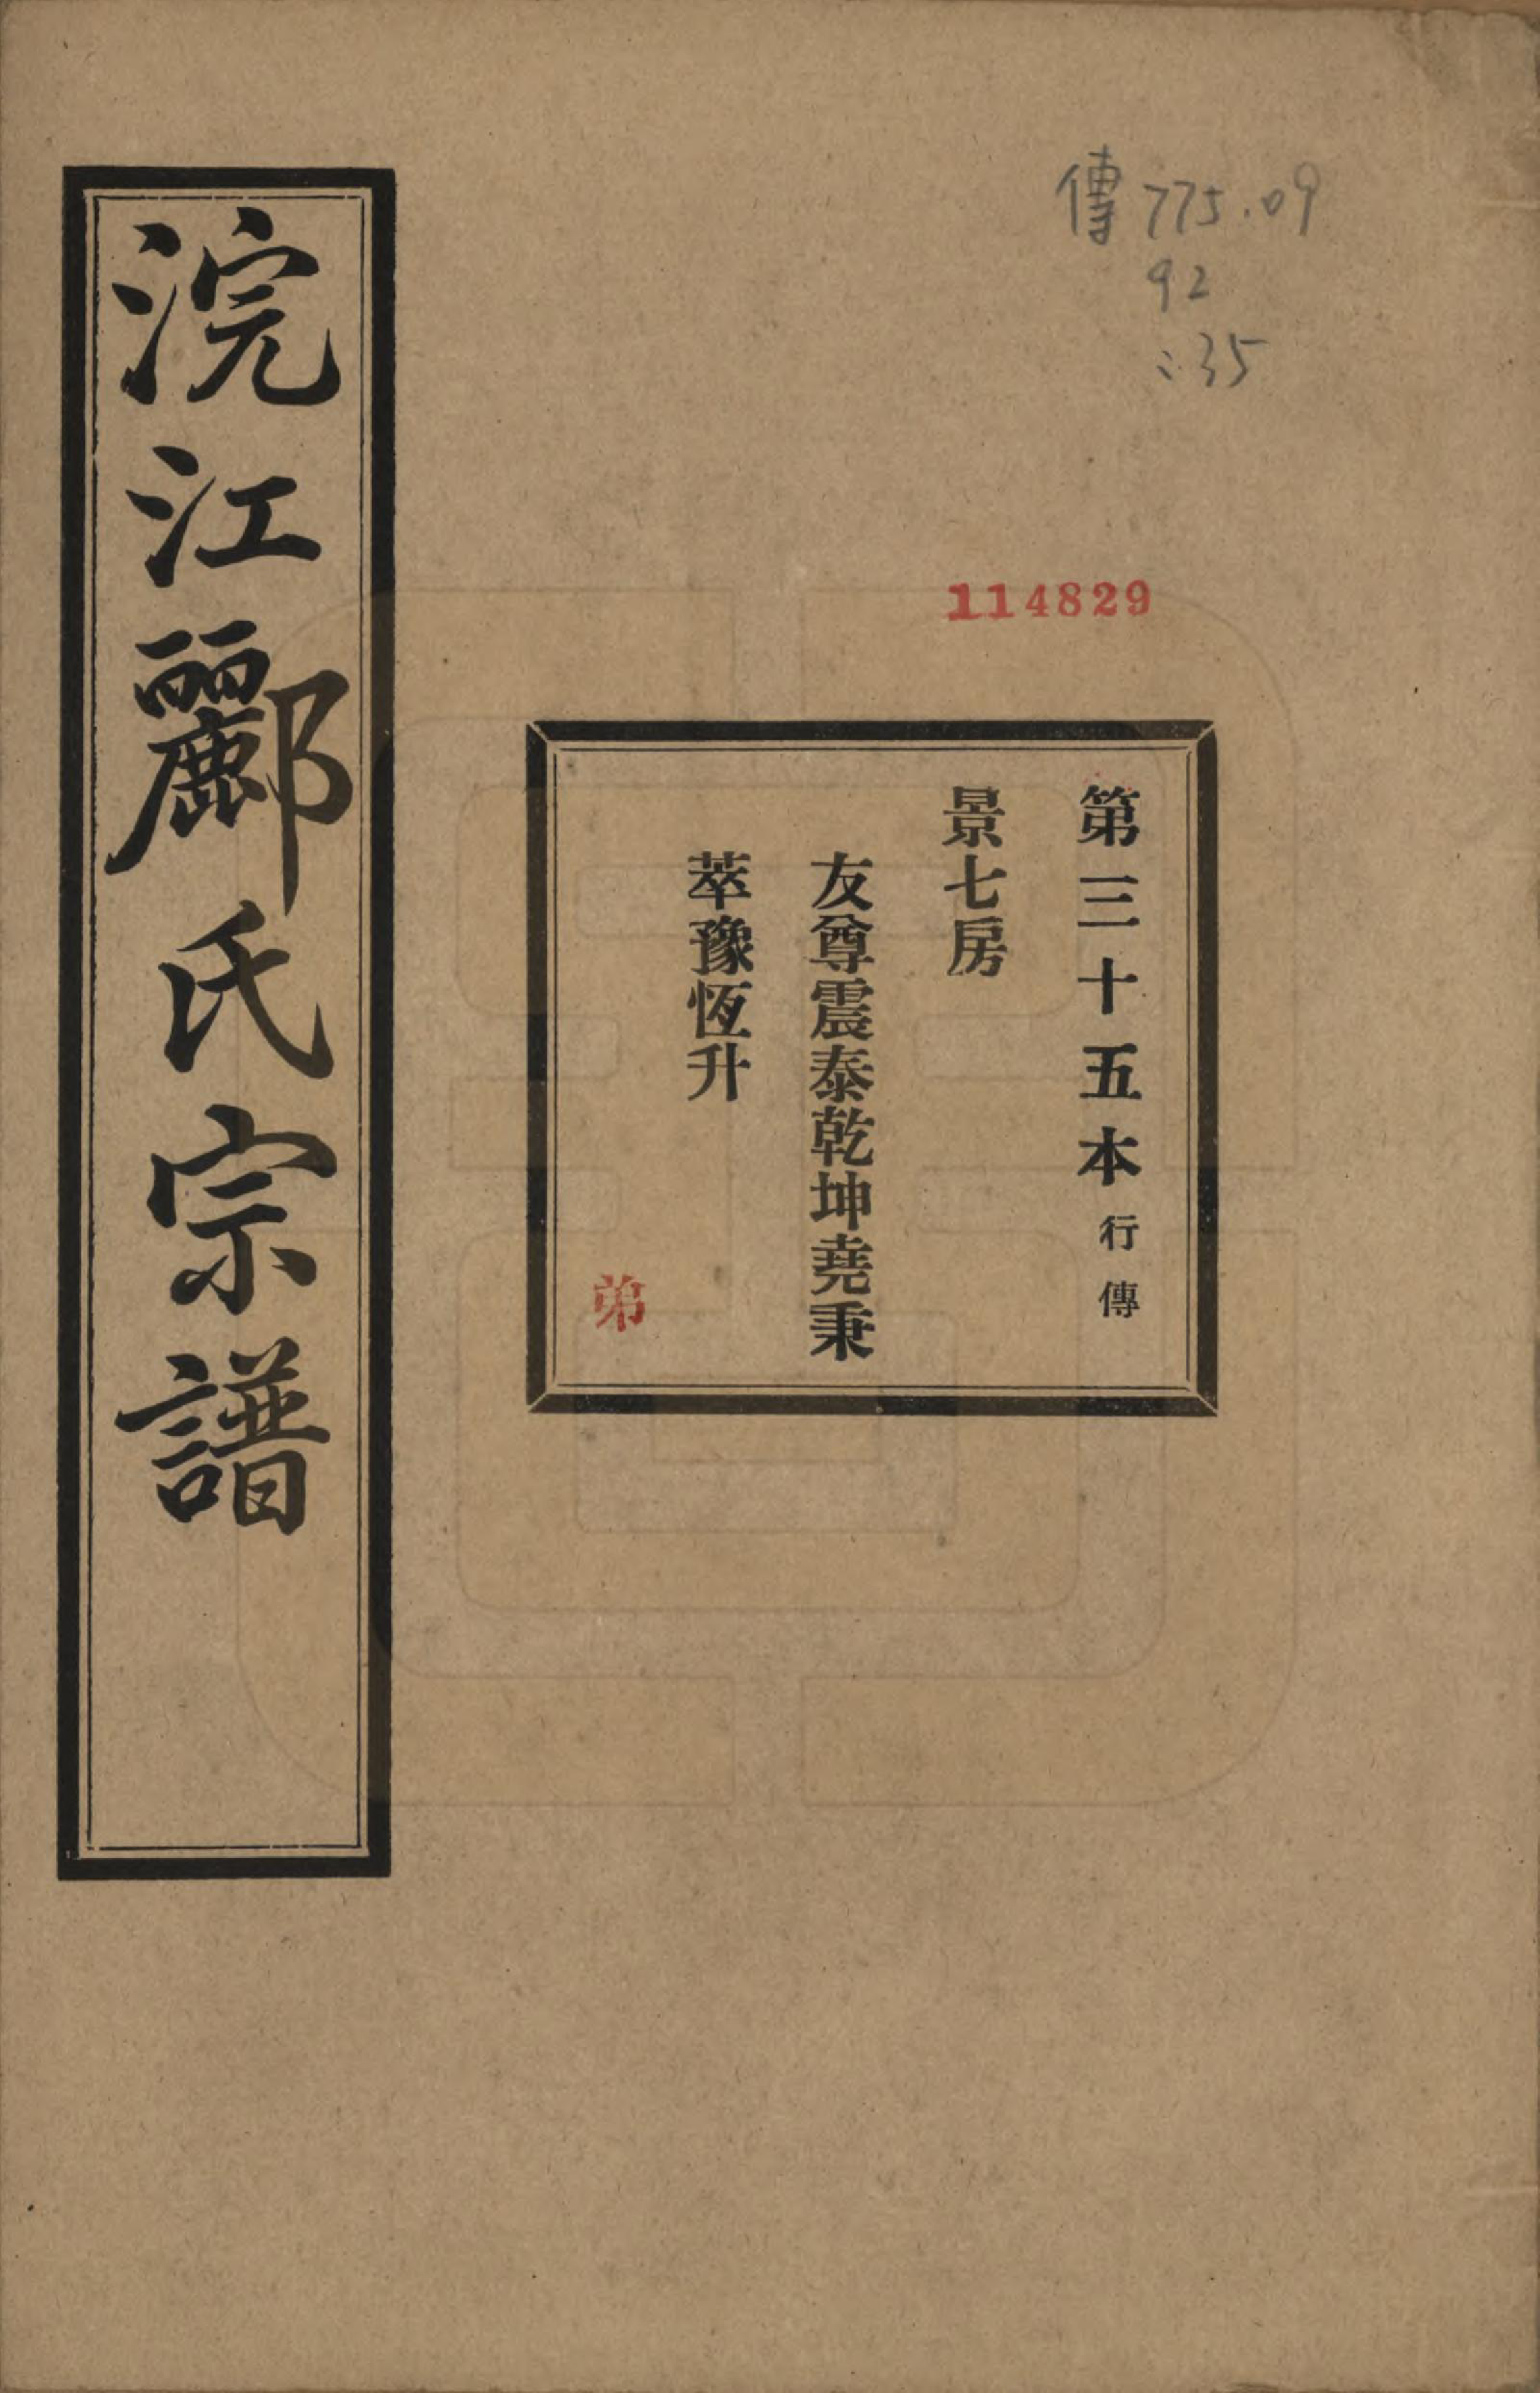 傳775.09
92
:35
114829
第三十五本行傳
景七房
友尊震泰乾坤堯秉
萃豫恆升
弟
浣江酈氏宗譜